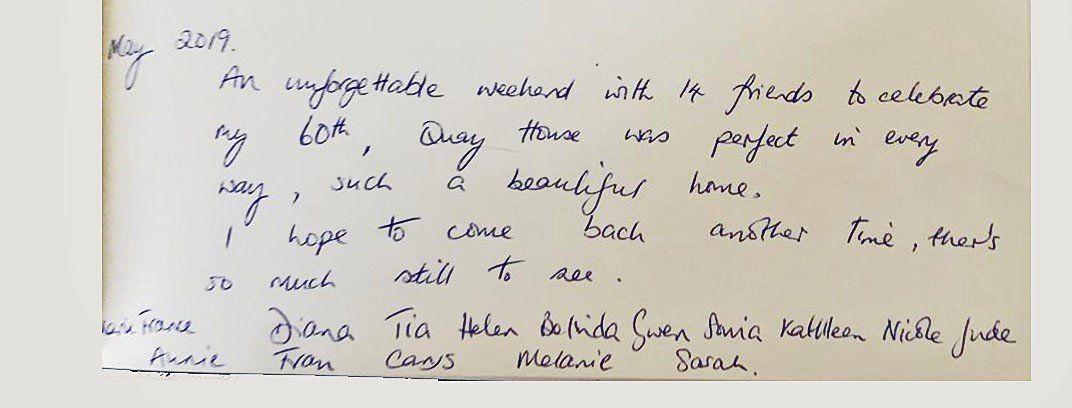 May 2019.
An unforgettable weekend with 14 friends to celebrate
my 60th, Quay House was perfect in every
way, such a beautiful home.
I hope to come back another time, ther's
so much still to see.
Diana Tia Helen Belinda Gwen Sonia Kathleen Nicole Jude
Annie Fran Carys Melanie Sarah.